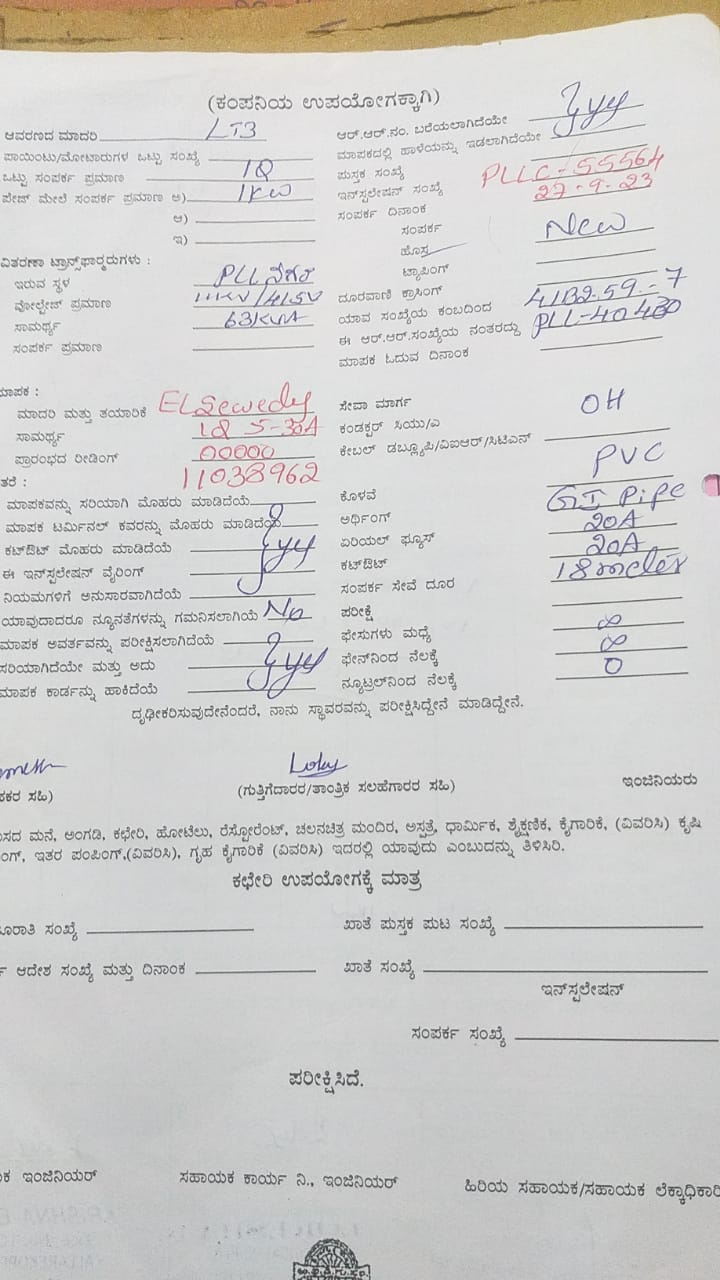 (ಕಂಪನಿಯ ಉಪಯೋಗಕ್ಕಾಗಿ)
ಆವರಣದ ಮಾದರಿ LT3
ಪಾಯಿಂಟು/ಮೋಟಾರುಗಳ ಒಟ್ಟು ಸಂಖ್ಯೆ
ಒಟ್ಟು ಸಂಪರ್ಕ ಪ್ರಮಾಣ 1Q
ಪೇಜ್ ಮೇಲೆ ಸಂಪರ್ಕ ಪ್ರಮಾಣ ಅ) 1KW
ಆ)
ಇ)
ವಿತರಣಾ ಟ್ರಾನ್ಸ್‌ಫಾರ್‍ಮರುಗಳು :
ಇರುವ ಸ್ಥಳ PLL ನಗರ
ವೋಲ್ಟೇಜ್ ಪ್ರಮಾಣ 11KV/415V
ಸಾಮರ್ಥ್ಯ 63KVA
ಸಂಪರ್ಕ ಪ್ರಮಾಣ
ಆರ್.ಆರ್.ನಂ. ಬರೆಯಲಾಗಿದೆಯೇ yes
ಮಾಪಕದಲ್ಲಿ ಹಾಳೆಯನ್ನು ಇಡಲಾಗಿದೆಯೇ
ಪುಸ್ತಕ ಸಂಖ್ಯೆ
ಇನ್‌ಸ್ಟಲೇಷನ್ ಸಂಖ್ಯೆ PLLC-55564
ಸಂಪರ್ಕ ದಿನಾಂಕ 27-9-23
ಸಂಪರ್ಕ
ಹೊಸ New
ಟ್ಯಾಪಿಂಗ್
ದೂರವಾಣಿ ಕ್ರಾಸಿಂಗ್
ಯಾವ ಸಂಖ್ಯೆಯ ಕಂಬದಿಂದ 41B2.59.-7
ಈ ಆರ್.ಆರ್.ಸಂಖ್ಯೆಯ ನಂತರದ್ದು PLL-40430
ಮಾಪಕ ಓದುವ ದಿನಾಂಕ
ಮಾಪಕ :
ಮಾದರಿ ಮತ್ತು ತಯಾರಿಕೆ ELSewedy
ಸಾಮರ್ಥ್ಯ 1Q 5-30A
ಪ್ರಾರಂಭದ ರೀಡಿಂಗ್ 00000
ತರೆ : 11038962
ಮಾಪಕವನ್ನು ಸರಿಯಾಗಿ ಮೊಹರು ಮಾಡಿದೆಯೆ
ಮಾಪಕ ಟರ್ಮಿನಲ್ ಕವರನ್ನು ಮೊಹರು ಮಾಡಿದೆಯೆ
ಕಟ್‌ಔಟ್ ಮೊಹರು ಮಾಡಿದೆಯೆ yes
ಈ ಇನ್‌ಸ್ಟಲೇಷನ್ ವೈರಿಂಗ್
ನಿಯಮಗಳಿಗೆ ಅನುಸಾರವಾಗಿದೆಯೆ
ಯಾವುದಾದರೂ ನ್ಯೂನತೆಗಳನ್ನು ಗಮನಿಸಲಾಗಿಯೆ No
ಮಾಪಕ ಅವರ್ತವನ್ನು ಪರೀಕ್ಷಿಸಲಾಗಿದೆಯೆ
ಸರಿಯಾಗಿದೆಯೇ ಮತ್ತು ಅದು yes
ಮಾಪಕ ಕಾರ್ಡನ್ನು ಹಾಕಿದೆಯೆ
ಸೇವಾ ಮಾರ್ಗ OH
ಕಂಡಕ್ಟರ್ ಸಿಯು/ಎ
ಕೇಬಲ್ ಡಬ್ಲ್ಯೂಪಿ/ವಿಐಆರ್/ಸಿಟಿಎಸ್ PVC
ಕೊಳವೆ GI Pipe
ಅರ್ಥಿಂಗ್
ಏರಿಯಲ್ ಫ್ಯೂಸ್ 20A
ಕಟ್‌ಔಟ್ 20A
ಸಂಪರ್ಕ ಸೇವೆ ದೂರ 18meter
ಪರೀಕ್ಷೆ
ಫೇಸುಗಳು ಮಧ್ಯೆ ∞
ಫೇಸ್‌ನಿಂದ ನೆಲಕ್ಕೆ ∞
ನ್ಯೂಟ್ರಲ್‌ನಿಂದ ನೆಲಕ್ಕೆ 0
ದೃಢೀಕರಿಸುವುದೇನೆಂದರೆ, ನಾನು ಸ್ಥಾವರವನ್ನು ಪರೀಕ್ಷಿಸಿದ್ದೇನೆ ಮಾಡಿದ್ದೇನೆ.
ಕರ ಸಹಿ) (ಗುತ್ತಿಗೆದಾರರ/ತಾಂತ್ರಿಕ ಸಲಹೆಗಾರರ ಸಹಿ) ಇಂಜಿನಿಯರು
ಸದ ಮನೆ, ಅಂಗಡಿ, ಕಛೇರಿ, ಹೋಟೆಲು, ರೆಸ್ಟೋರೆಂಟ್, ಚಲನಚಿತ್ರ ಮಂದಿರ, ಅಸ್ಪತ್ರೆ, ಧಾರ್ಮಿಕ, ಶೈಕ್ಷಣಿಕ, ಕೈಗಾರಿಕೆ, (ವಿವರಿಸಿ) ಕೃಷಿ
ಂಗ್, ಇತರ ಪಂಪಿಂಗ್,(ವಿವರಿಸಿ), ಗೃಹ ಕೈಗಾರಿಕೆ (ವಿವರಿಸಿ) ಇದರಲ್ಲಿ ಯಾವುದು ಎಂಬುದನ್ನು ತಿಳಿಸಿರಿ.
ಕಛೇರಿ ಉಪಯೋಗಕ್ಕೆ ಮಾತ್ರ
ರಾತಿ ಸಂಖ್ಯೆ ಖಾತೆ ಪುಸ್ತಕ ಪುಟ ಸಂಖ್ಯೆ
ಆದೇಶ ಸಂಖ್ಯೆ ಮತ್ತು ದಿನಾಂಕ ಖಾತೆ ಸಂಖ್ಯೆ
ಇನ್‌ಸ್ಟಲೇಷನ್
ಸಂಪರ್ಕ ಸಂಖ್ಯೆ
ಪರೀಕ್ಷಿಸಿದೆ.
ಕ ಇಂಜಿನಿಯರ್ ಸಹಾಯಕ ಕಾರ್ಯ ನಿ., ಇಂಜಿನಿಯರ್ ಹಿರಿಯ ಸಹಾಯಕ/ಸಹಾಯಕ ಲೆಕ್ಕಾಧಿಕಾರಿ